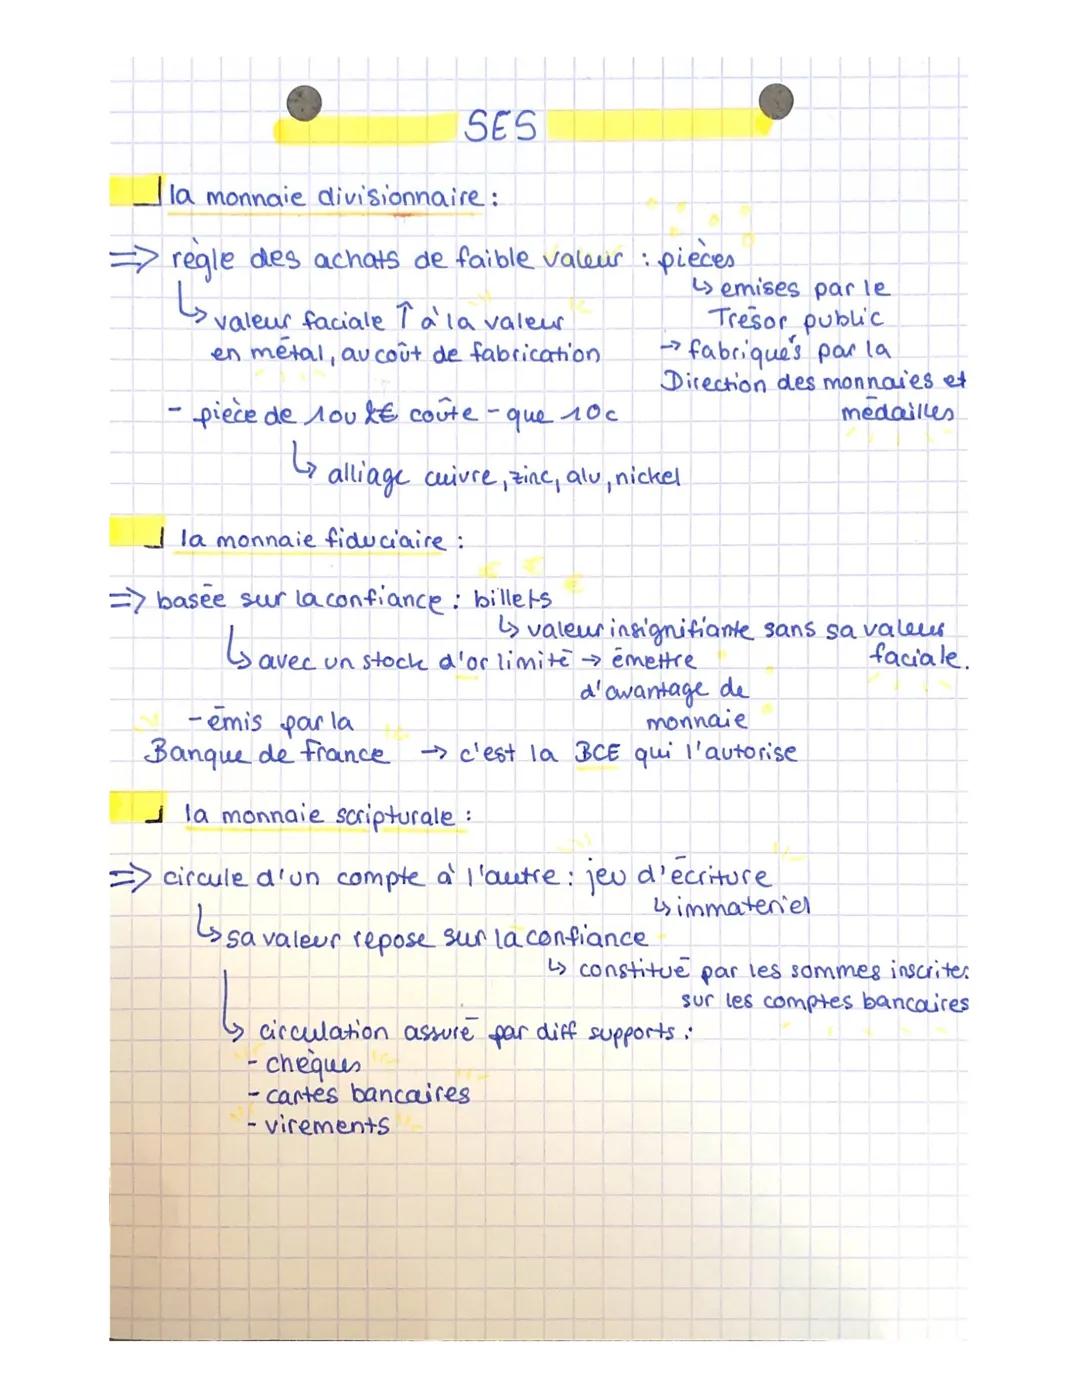 SES
la monnaie divisionnaire :
⇒ règle des achats de faible valeur : pièces
↳ émises par le
Trésor public
↳ valeur faciale ↑ à la valeur
en métal, au coût de fabrication
→ fabriqués par la
Direction des monnaies et
médailles
- pièce de 1 ou 2€ coûte - que 10c
↳ alliage cuivre, zinc, alu, nickel
la monnaie fiduciaire :
⇒ basée sur la confiance : billets
↳ valeur insignifiante sans sa valeur
faciale.
↳ avec un stock d'or limité → émettre
d'avantage de
monnaie
- émis par la
Banque de France → c'est la BCE qui l'autorise
la monnaie scripturale :
⇒ circule d'un compte à l'autre : jeu d'écriture
↳ immatériel
↳ sa valeur repose sur la confiance
↳ constitué par les sommes inscrites
sur les comptes bancaires
↳ circulation assuré par diff supports :
- chèques
- cartes bancaires
- virements